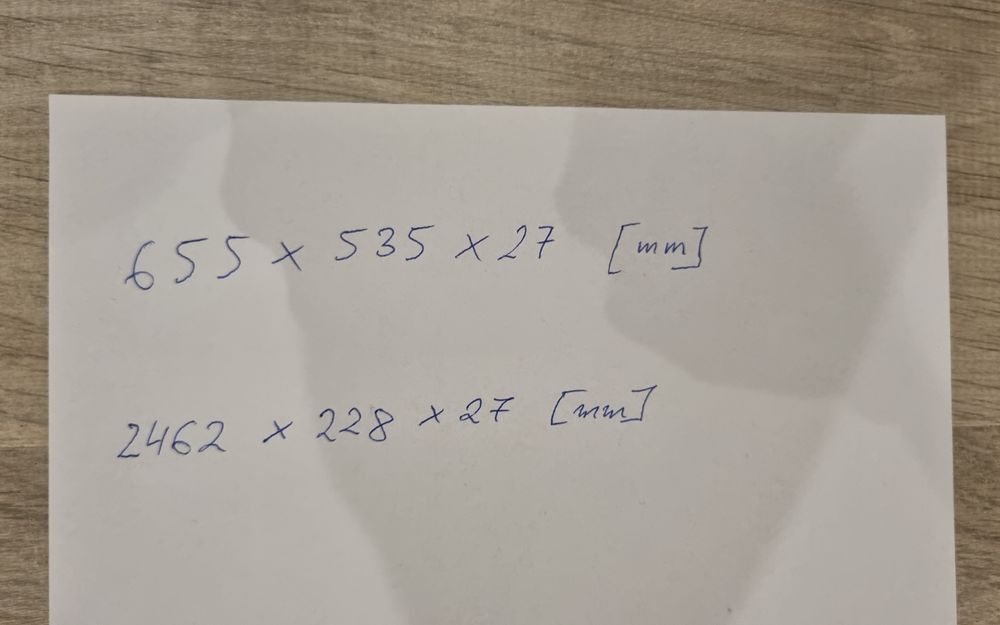 655 x 535 x 27 [mm]
2462 x 228 x 27 [mm]